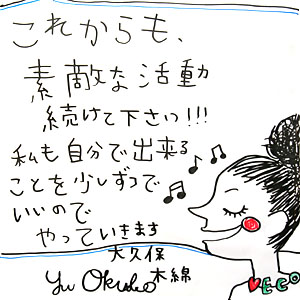 これからも、
素敵な活動
続けて下さいっ!!!
私も自分で出来る
ことを少しずつで
いいので
やっていきます
大久保
木綿
Yu Okubo
ECO